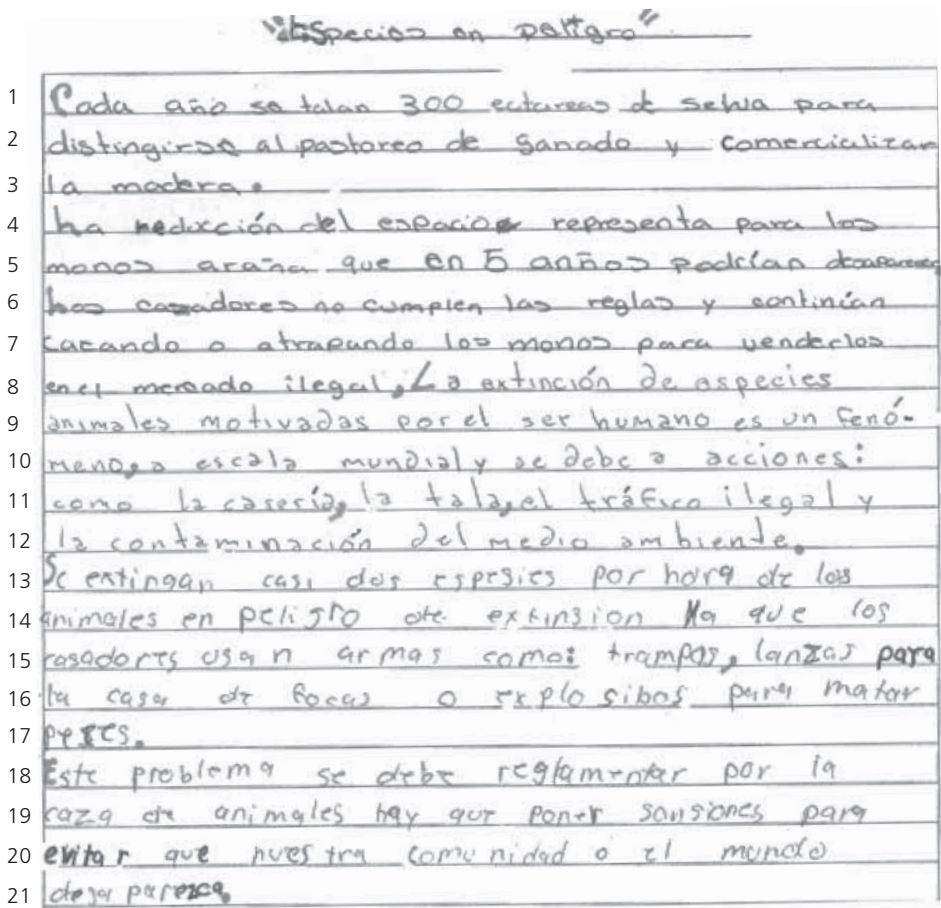 "Especies en peligro"
1 Cada año se talan 300 ectareas de selva para
2 distingirse al pastoreo de Ganado y comercializar
3 la madera.
4 La reducción del espacio representa para los
5 monos araña que en 5 anños podrían desaparecer
6 Los cazadores no cumplen las reglas y continían
7 cacando o atrapando los monos para venderlos
8 en el mercado ilegal, La extinción de especies
9 animales motivadas por el ser humano es un fenó-
10 meno, a escala mundial y se debe a acciones:
11 como la casería, la tala, el tráfico ilegal y
12 la contaminación del medio ambiente.
13 Se extingan casi dos espesies por hora de los
14 animales en peligro de extinsion Ya que los
15 casadores usan armas como: trampas, lanzas para
16 la casa de focas o explosibos para matar
17 peses.
18 Este problema se debe reglamentar por la
19 caza de animales hay que poner sansiones para
20 evitar que nuestra comunidad o el mundo
21 desaparezca.